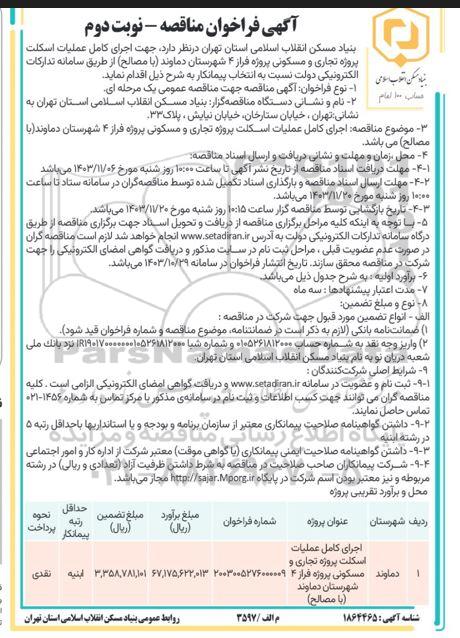 آگهی فراخوان مناقصه – نوبت دوم
بنیاد مسکن انقلاب اسلامی استان تهران درنظر دارد، جهت اجرای کامل عملیات اسکلت
پروژه تجاری و مسکونی پروژه فراز ۴ شهرستان دماوند (با مصالح) از طریق سامانه تدارکات
الکترونیکی دولت نسبت به انتخاب پیمانکار به شرح ذیل اقدام نماید.
بنیاد مسکن انقلاب اسلامی
حساب ۱۰۰ امام
۱- نوع فراخوان: آگهی مناقصه جهت مناقصه عمومی یک مرحله ای.
۲- نام و نشانی دستگاه مناقصه‌گزار: بنیاد مسکن انقلاب اسلامی استان تهران به
نشانی:تهران ، خیابان ستارخان، خیابان نیایش ، پلاک۳۳.
۳- موضوع مناقصه: اجرای کامل عملیات اسکلت پروژه تجاری و مسکونی پروژه فراز ۴ شهرستان دماوند(با
مصالح) می باشد.
۴- محل ،زمان و مهلت و نشانی دریافت و ارسال اسناد مناقصه:
۴-۱- مهلت دریافت اسناد مناقصه از تاریخ نشر آگهی تا ساعت ۱۰:۰۰ روز شنبه مورخ ۱۴۰۳/۱۱/۰۶ می‌باشد
۴-۲- مهلت ارسال اسناد مناقصه و بارگذاری اسناد تکمیل شده توسط مناقصه‌گران در سامانه ستاد تا ساعت
۱۰:۰۰ روز شنبه مورخ ۱۴۰۳/۱۱/۲۰ می‌باشد.
۴-۳- تاریخ بازگشایی توسط مناقصه گزار ساعت ۱۰:۱۵ روز شنبه مورخ ۱۴۰۳/۱۱/۲۰ می‌باشد.
۵- با توجه به اینکه کلیه مراحل برگزاری مناقصه از دریافت و تحویل اسناد جهت برگزاری مناقصه از طریق
درگاه سامانه تدارکات الکترونیکی دولت به آدرس www.setadiran.ir انجام خواهد شد لازم است مناقصه گران
در صورت عدم عضویت قبلی ، مراحل ثبت نام در سایت مذکور و دریافت گواهی امضای الکترونیکی را جهت
شرکت در مناقصه محقق سازند. تاریخ انتشار فراخوان در سامانه ۱۴۰۳/۱۰/۲۹ می‌باشد.
۶- برآورد اولیه : به شرح جدول ذیل می‌باشد.
۷- مدت اعتبار پیشنهادها : سه ماه
۸- نوع و مبلغ تضمین:
الف - انواع تضمین مورد قبول جهت شرکت در مناقصه :
۱) ضمانت‌نامه بانکی (لازم به ذکر است در ضمانتنامه، موضوع مناقصه و شماره فراخوان قید شود).
۲) واریز وجه نقد به شماره حساب ۰۱۰۵۲۶۱۸۱۲۰۰۰ و شماره شبا
نزد بانک ملی
شعبه دریان نو به نام بنیاد مسکن انقلاب اسلامی استان تهران.
۹- شرایط اصلی شرکت‌کنندگان :
۹-۱- ثبت نام و عضویت در سامانه www.setadiran.ir و دریافت گواهی امضای الکترونیکی الزامی است . کلیه
مناقصه گران می توانند جهت کسب اطلاعات و ثبت نام در سامانه‌ی مذکور با مرکز تماس به شماره ۱۴۵۶-۰۲۱
تماس حاصل نمایند.
۹-۲- داشتن گواهینامه صلاحیت پیمانکاری معتبر از سازمان برنامه و بودجه و یا استانداریها باحداقل رتبه ۵
در رشته ابنیه
۹-۳- داشتن گواهینامه صلاحیت ایمنی پیمانکاری (یا گواهی موقت) معتبر شرکت از اداره کار و امور اجتماعی
۹-۴- شرکت پیمانکاران صاحب صلاحیت در مناقصه به شرط داشتن ظرفیت آزاد (تعدادی و ریالی) در رشته
مربوطه و نیز معتبر بودن اسم شرکت در پایگاه http://sajar.Mporg.ir مجاز می‌باشد.
محل و برآورد تقریبی پروژه
ردیف شهرستان عنوان پروژه شماره فراخوان مبلغ برآورد (ریال) مبلغ تضمین (ریال) حداقل رتبه پیمانکار نحوه پرداخت
۱ دماوند اجرای کامل عملیات اسکلت پروژه تجاری و مسکونی پروژه فراز ۴ شهرستان دماوند (با مصالح) ۲۰۰۳۰۰۵۲۷۶۰۰۰۰۰۹ ۶۷,۱۷۵,۶۲۲,۰۱۳ ۳,۳۵۸,۷۸۱,۱۰۱ ابنیه نقدی
شناسه آگهی : ۱۸۶۴۴۶۵ م الف /۳۵۹۷ روابط عمومی بنیاد مسکن انقلاب اسلامی استان تهران